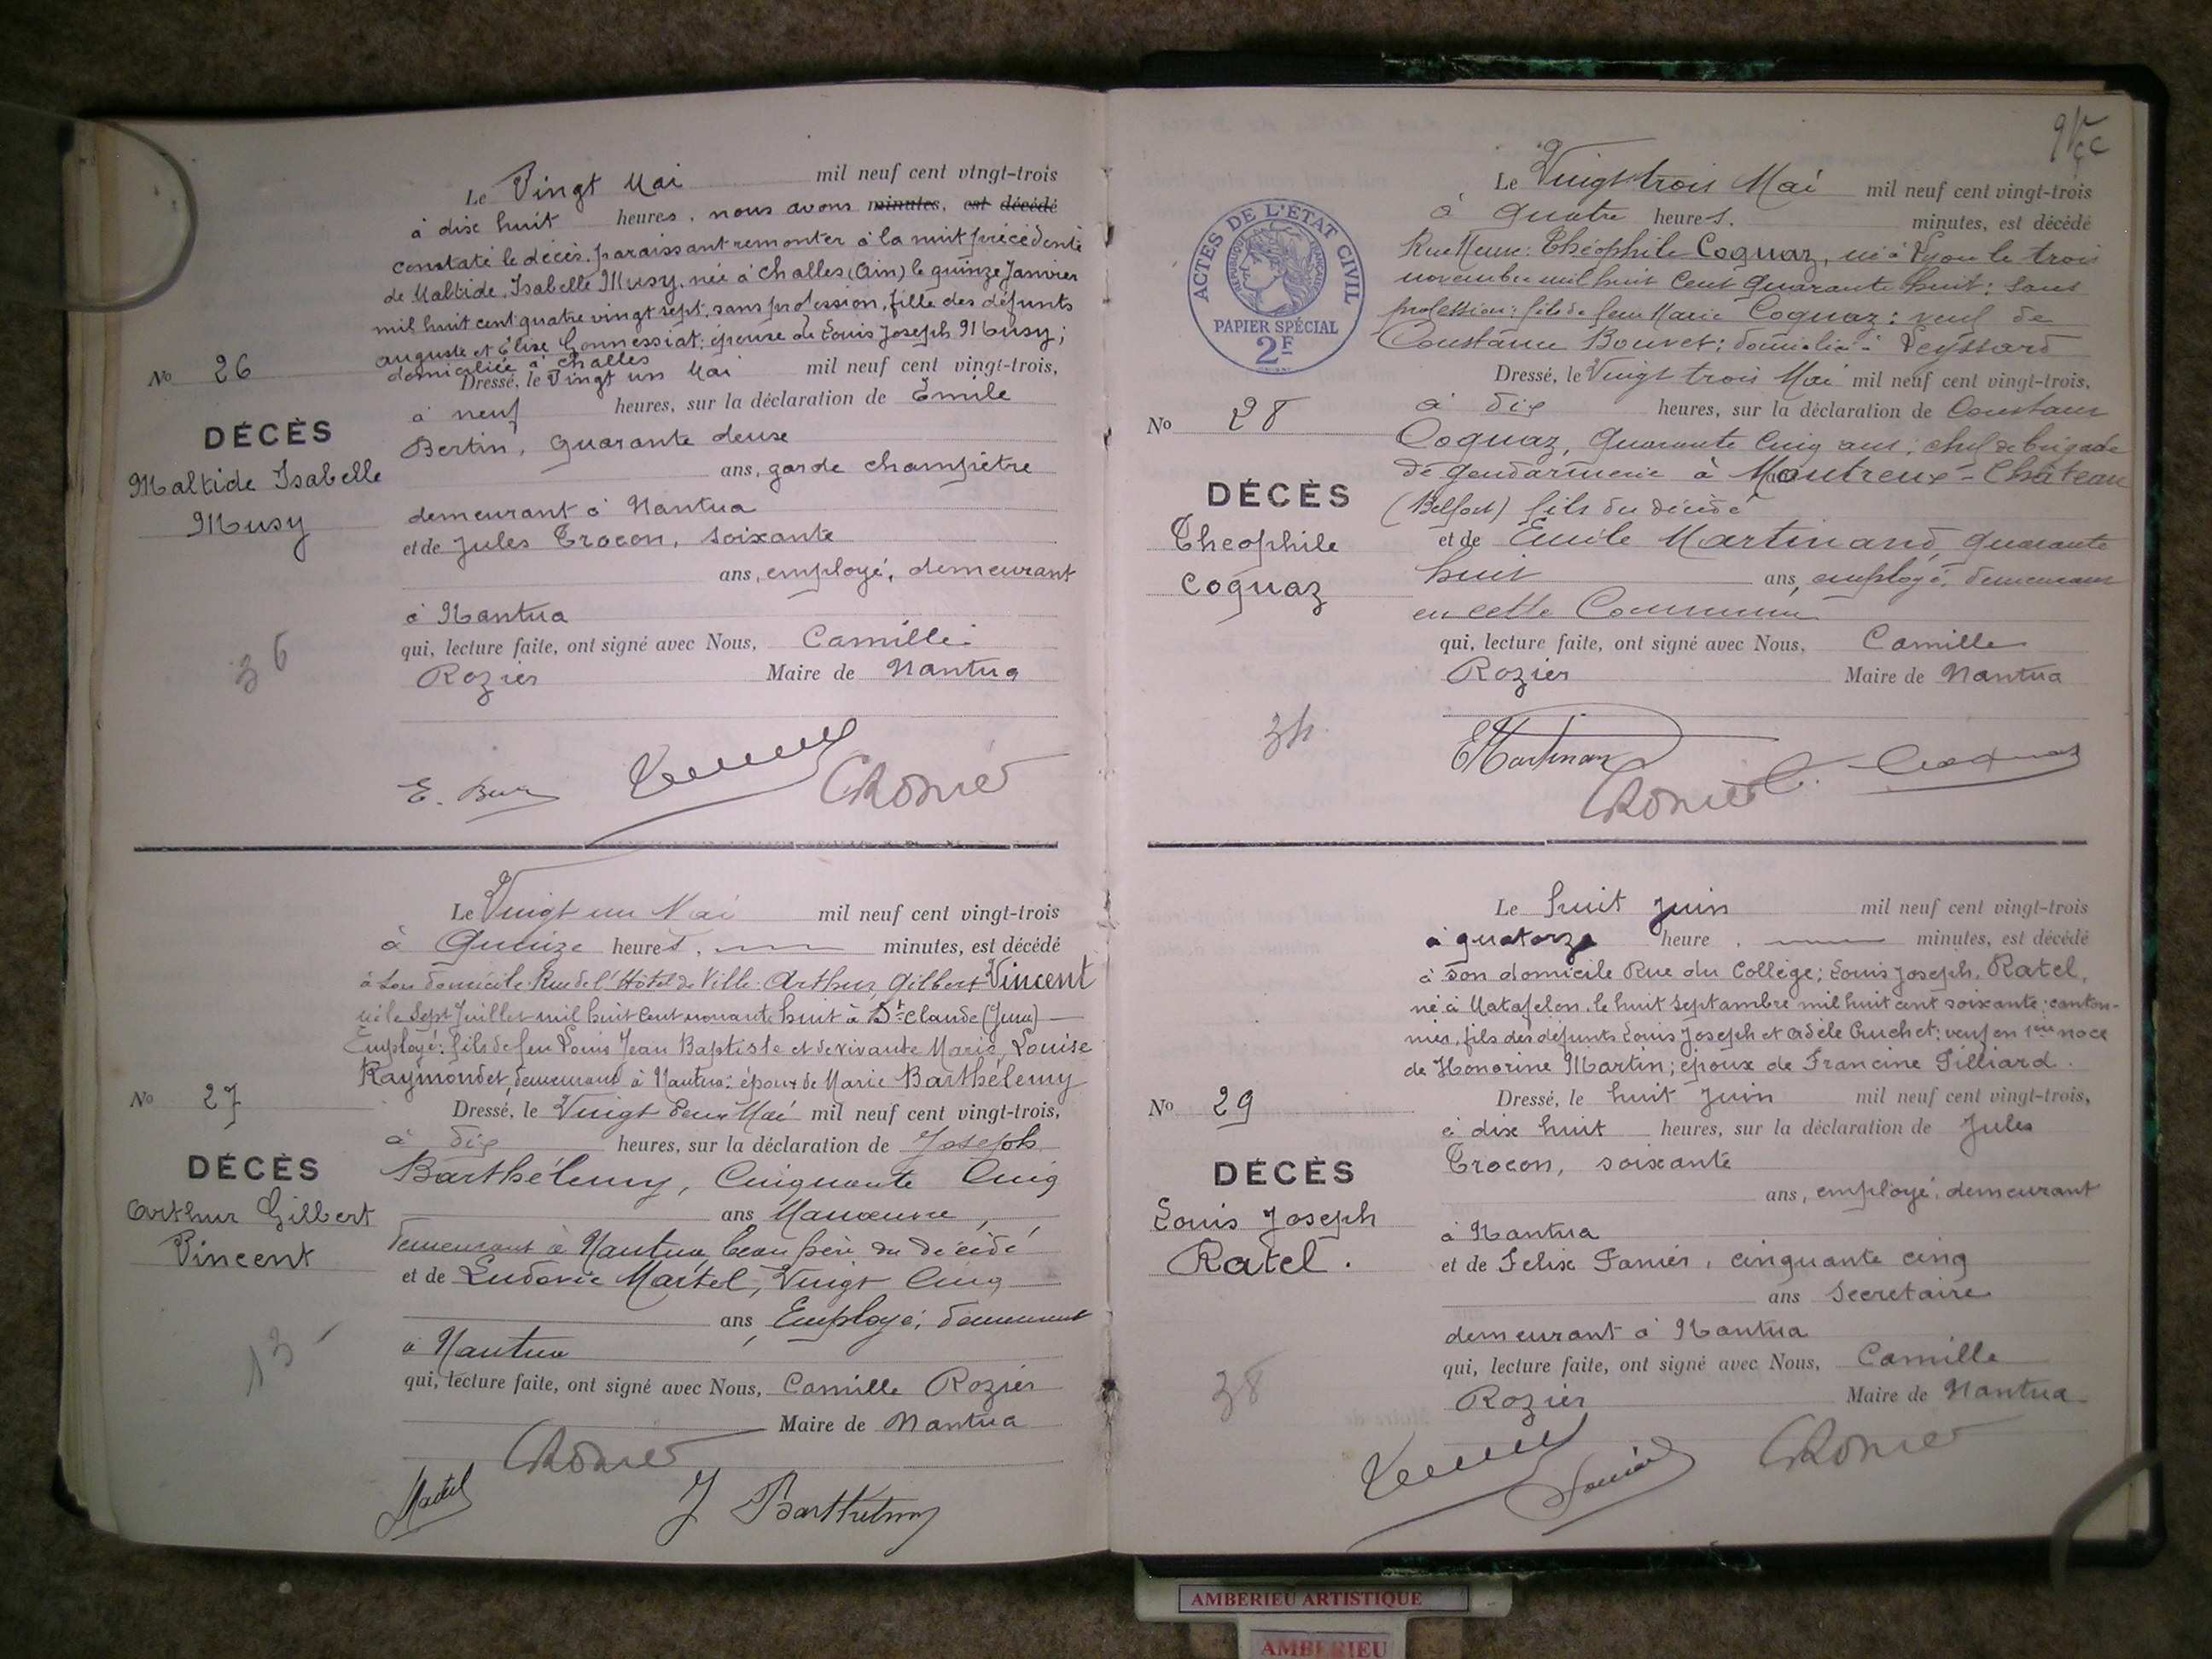 Le Vingt Mai mil neuf cent vingt-trois
à dix huit heures, nous avons minutes, est décédé
constaté le décès paraissant remonter à la nuit précédente
de Maltide, Isabelle Musy, née à Challes (Ain) le quinze Janvier
mil huit cent quatre vingt sept, sans profession, fille des défunts
Auguste et Elise Gonnessiat; épouse de Louis Joseph Musy;
domiciliée à Challes
No 26
Dressé, le Vingt un Mai mil neuf cent vingt-trois,
à neuf heures, sur la déclaration de Emile
DÉCÈS
Maltide Isabelle
Musy
36
Bertin, quarante deux
ans, garde champêtre
demeurant à Nantua
et de Jules Crocon, soixante
ans, employé, demeurant
à Nantua
qui, lecture faite, ont signé avec Nous, Camille
Rozier Maire de Nantua
CRozier
Le Vingt un Mai mil neuf cent vingt-trois
à Quinze heures, minutes, est décédé
à son domicile Rue de l'Hôtel de Ville: Arthur, Gilbert Vincent
né le Sept Juillet mil huit cent nonante huit à St Claude (Jura)
Employé: fils de feu Louis Jean Baptiste et de vivante Marie, Louise
Raymondet, demeurant à Nantua: époux de Marie Barthélemy
No 27
Dressé, le Vingt deux Mai mil neuf cent vingt-trois,
à dix heures, sur la déclaration de Joseph
DÉCÈS
Arthur Gilbert
Vincent
13
Barthélemy, Cinquante Cinq
ans Manœuvre,
demeurant à Nantua beau père du décédé
et de Ludovic Martel, Vingt Cinq
ans Employé, demeurant
à Nantua
qui, lecture faite, ont signé avec Nous, Camille Rozier
Maire de Nantua
CRozier
Martel
J Barthelemy
Le Vingt trois Mai mil neuf cent vingt-trois
à Quatre heures. minutes, est décédé
Rue Neuve: Théophile Coquaz, né à Lyon le trois
novembre mil huit cent quarante huit: sans
profession: fils de feue Marie Coquaz: veuf de
Constance Bouvet: domicilié à Leyssard
ACTES DE L'ÉTAT CIVIL
RÉPUBLIQUE FRANÇAISE
PAPIER SPÉCIAL
2F
No 28
Dressé, le Vingt trois Mai mil neuf cent vingt-trois,
à dix heures, sur la déclaration de Constant
DÉCÈS
Theophile
Coquaz
34
Coquaz, Quarante Cinq ans; chef de brigade
de gendarmerie à Montreux-Château
(Belfort) fils du décédé
et de Emile Martinand, quarante
huit ans, employé, demeurant
en cette Commune
qui, lecture faite, ont signé avec Nous, Camille
Rozier Maire de Nantua
EMartinand
CRozier
C. Coquaz
Le huit Juin mil neuf cent vingt-trois
à quatorze heure, minutes, est décédé
à son domicile Rue du Collège; Louis Joseph, Ratel,
né à Matafelon, le huit Septambre mil huit cent soixante; canton-
nier, fils des défunts Louis Joseph et Adèle Cruchet: veuf en 1ère noce
de Honorine Martin; époux de Francine Pilliard.
No 29
Dressé, le huit Juin mil neuf cent vingt-trois,
à dix huit heures, sur la déclaration de Jules
DÉCÈS
Louis Joseph
Ratel.
38
Crocon, soixante
ans, employé, demeurant
à Nantua
et de Felix Fanier, cinquante cinq
ans Secretaire
demeurant à Nantua
qui, lecture faite, ont signé avec Nous, Camille
Rozier Maire de Nantua
CRozier
AMBERIEU ARTISTIQUE
AMBERIEU